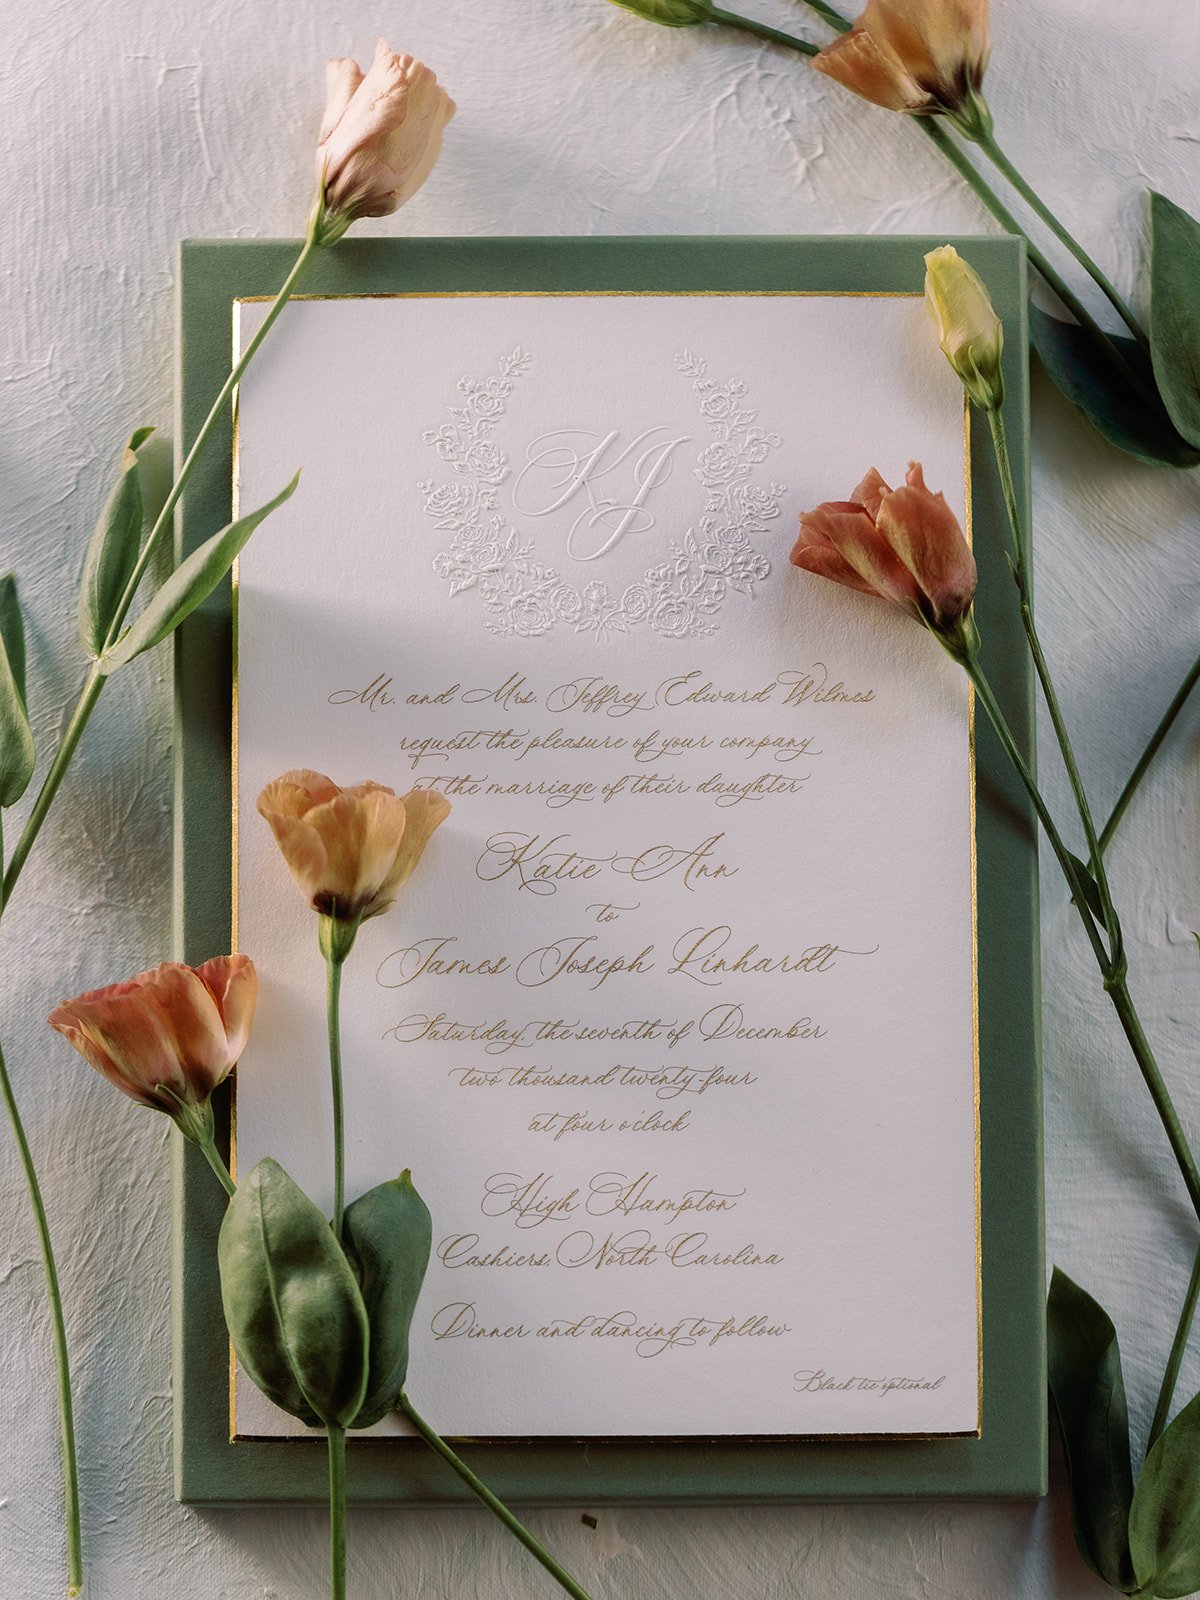 KJ
Mr. and Mrs. Jeffrey Edward Wilmes
request the pleasure of your company
at the marriage of their daughter
Katie Ann
to
James Joseph Linhardt
Saturday, the seventh of December
two thousand twenty-four
at four o'clock
High Hampton
Cashiers, North Carolina
Dinner and dancing to follow
Black tie optional